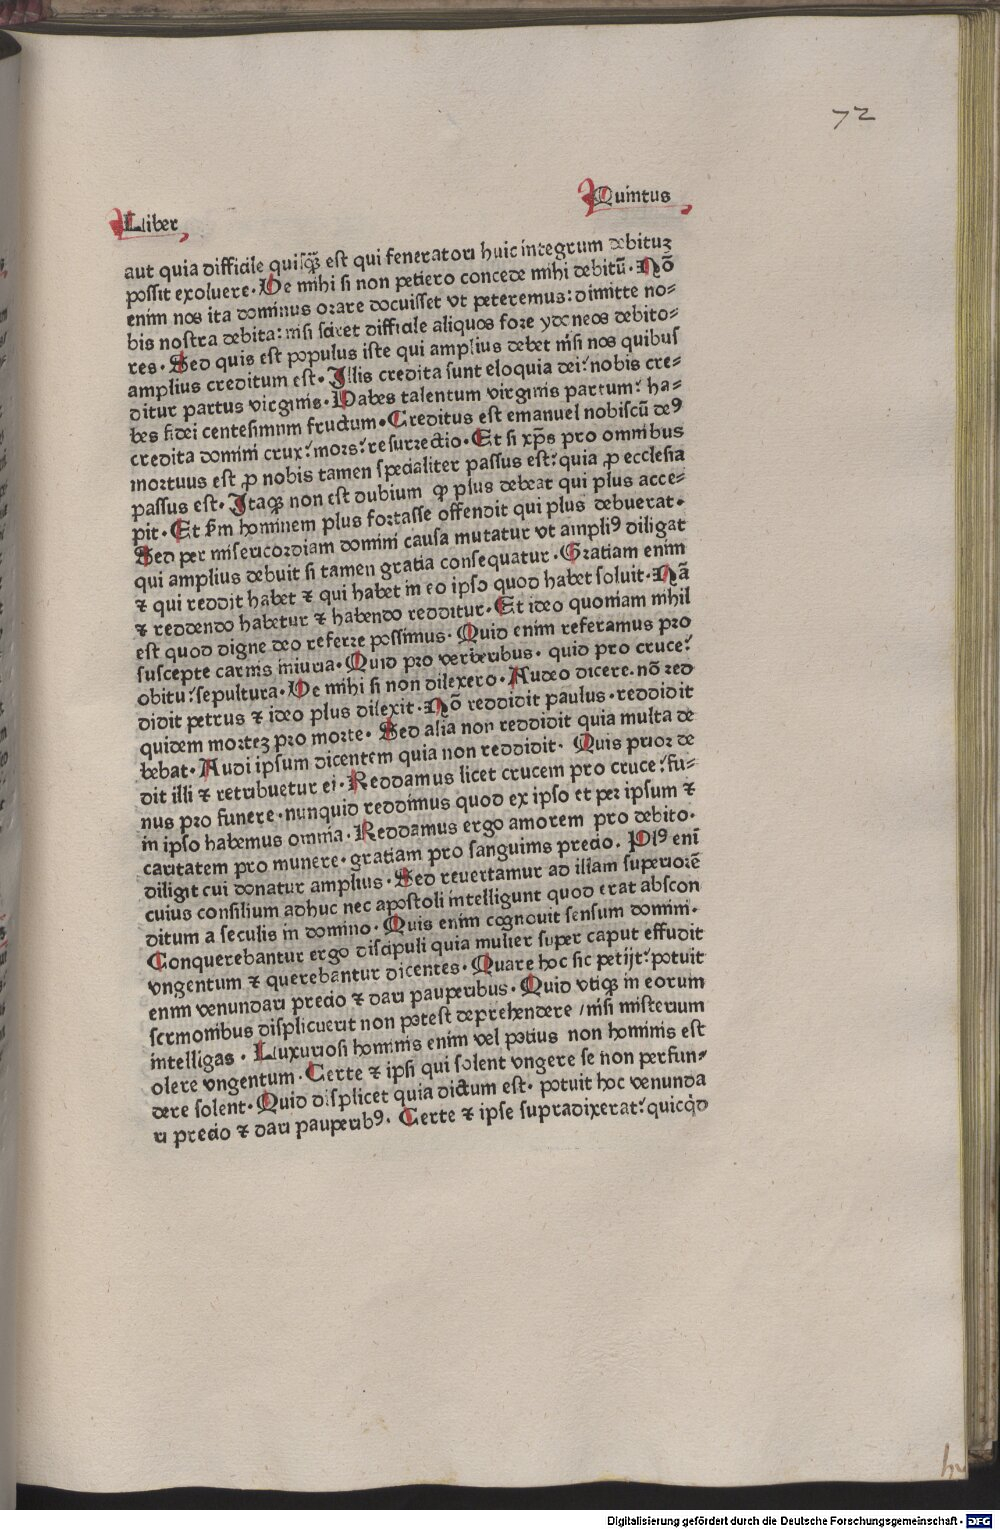 72
Liber Quintus
aut quia difficile quisq̄ꝫ est qui feneratori huic integrum debituꝫ
possit exoluere. Ue mihi si non petiero concede mihi debitū. Nō
enim nos ita dominus orare docuisset vt peteremus: dimitte no⸗
bis nostra debita: nisi sciret difficile aliquos fore ydoneos debito⸗
res. Sed quis est populus iste qui amplius debet nisi nos quibus
amplius creditum est. Illis credita sunt eloquia dei: nobis cre⸗
ditur partus virginis. Habes talentum virginis partum: ha⸗
bes fidei centesimum fructum. Creditus est emanuel nobiscū de⁹
credita domini crux: mors: resurrectio. Et si xp̄s pro omnibus
mortuus est ꝓ nobis tamen specialiter passus est: quia ꝓ ecclesia
passus est. Itaqꝫ non est dubium ꝙ plus debeat qui plus acce⸗
pit. Et ẜm hominem plus fortasse offendit qui plus debuerat.
Sed per misericordiam domini causa mutatur vt ampli⁹ diligat
qui amplius debuit si tamen gratia consequatur. Gratiam enim
⁊ qui reddit habet ⁊ qui habet in eo ipso quod habet soluit. Nā
⁊ reddendo habetur ⁊ habendo redditur. Et ideo quoniam nihil
est quod digne deo referre possimus. Quid enim referamus pro
suscepte carnis iniuria. Quid pro verberibus. quid pro cruce:
obitu: sepultura. Ue mihi si non dilexero. Audeo dicere. nō red
didit petrus ⁊ ideo plus dilexit. Nō reddidit paulus. reddidit
quidem morteꝫ pro morte. Sed alia non reddidit quia multa de
bebat. Audi ipsum dicentem quia non reddidit. Quis prior de
dit illi ⁊ retribuetur ei. Reddamus licet crucem pro cruce: fu⸗
nus pro funere. nunquid reddimus quod ex ipso et per ipsum ⁊
in ipso habemus omnia. Reddamus ergo amorem pro debito.
caritatem pro munere. gratiam pro sanguinis precio. Pl⁹ enī
diligit cui donatur amplius. Sed reuertamur ad illam superiorē
cuius consilium adhuc nec apostoli intelligunt quod erat abscon
ditum a seculis in domino. Quis enim cognouit sensum domini.
Conquerebantur ergo discipuli quia mulier super caput effudit
vngentum ⁊ querebantur dicentes. Quare hoc sic petijt: potuit
enim venundari precio ⁊ dari pauperibus. Quid vtiqꝫ in eorum
sermonibus displicuerit non potest deprehendere / nisi misterium
intelligas. Luxuriosi hominis enim vel potius non hominis est
olere vngentum. Certe ⁊ ipsi qui solent vngere se non perfun⸗
dere solent. Quid displicet quia dictum est. potuit hoc venunda
ri precio ⁊ dari pauperib⁹. Certe ⁊ ipse supradixerat: quicq̇d
Digitalisierung gefördert durch die Deutsche Forschungsgemeinschaft - DFG